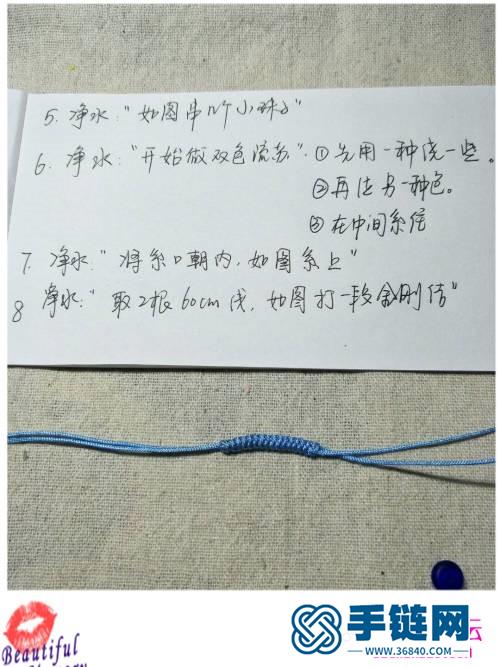 5. 净水:"如图串几个小珠子"
6. 净水:"开始做双色流苏". ①先用一种绕一些。
②再绕另一种色。
③在中间系住
7. 净水:"将系口朝内,如图系上"
8 净水:"取2根60cm线,如图打一段金刚结"
Beautiful
手链网
www.36840.com
坛